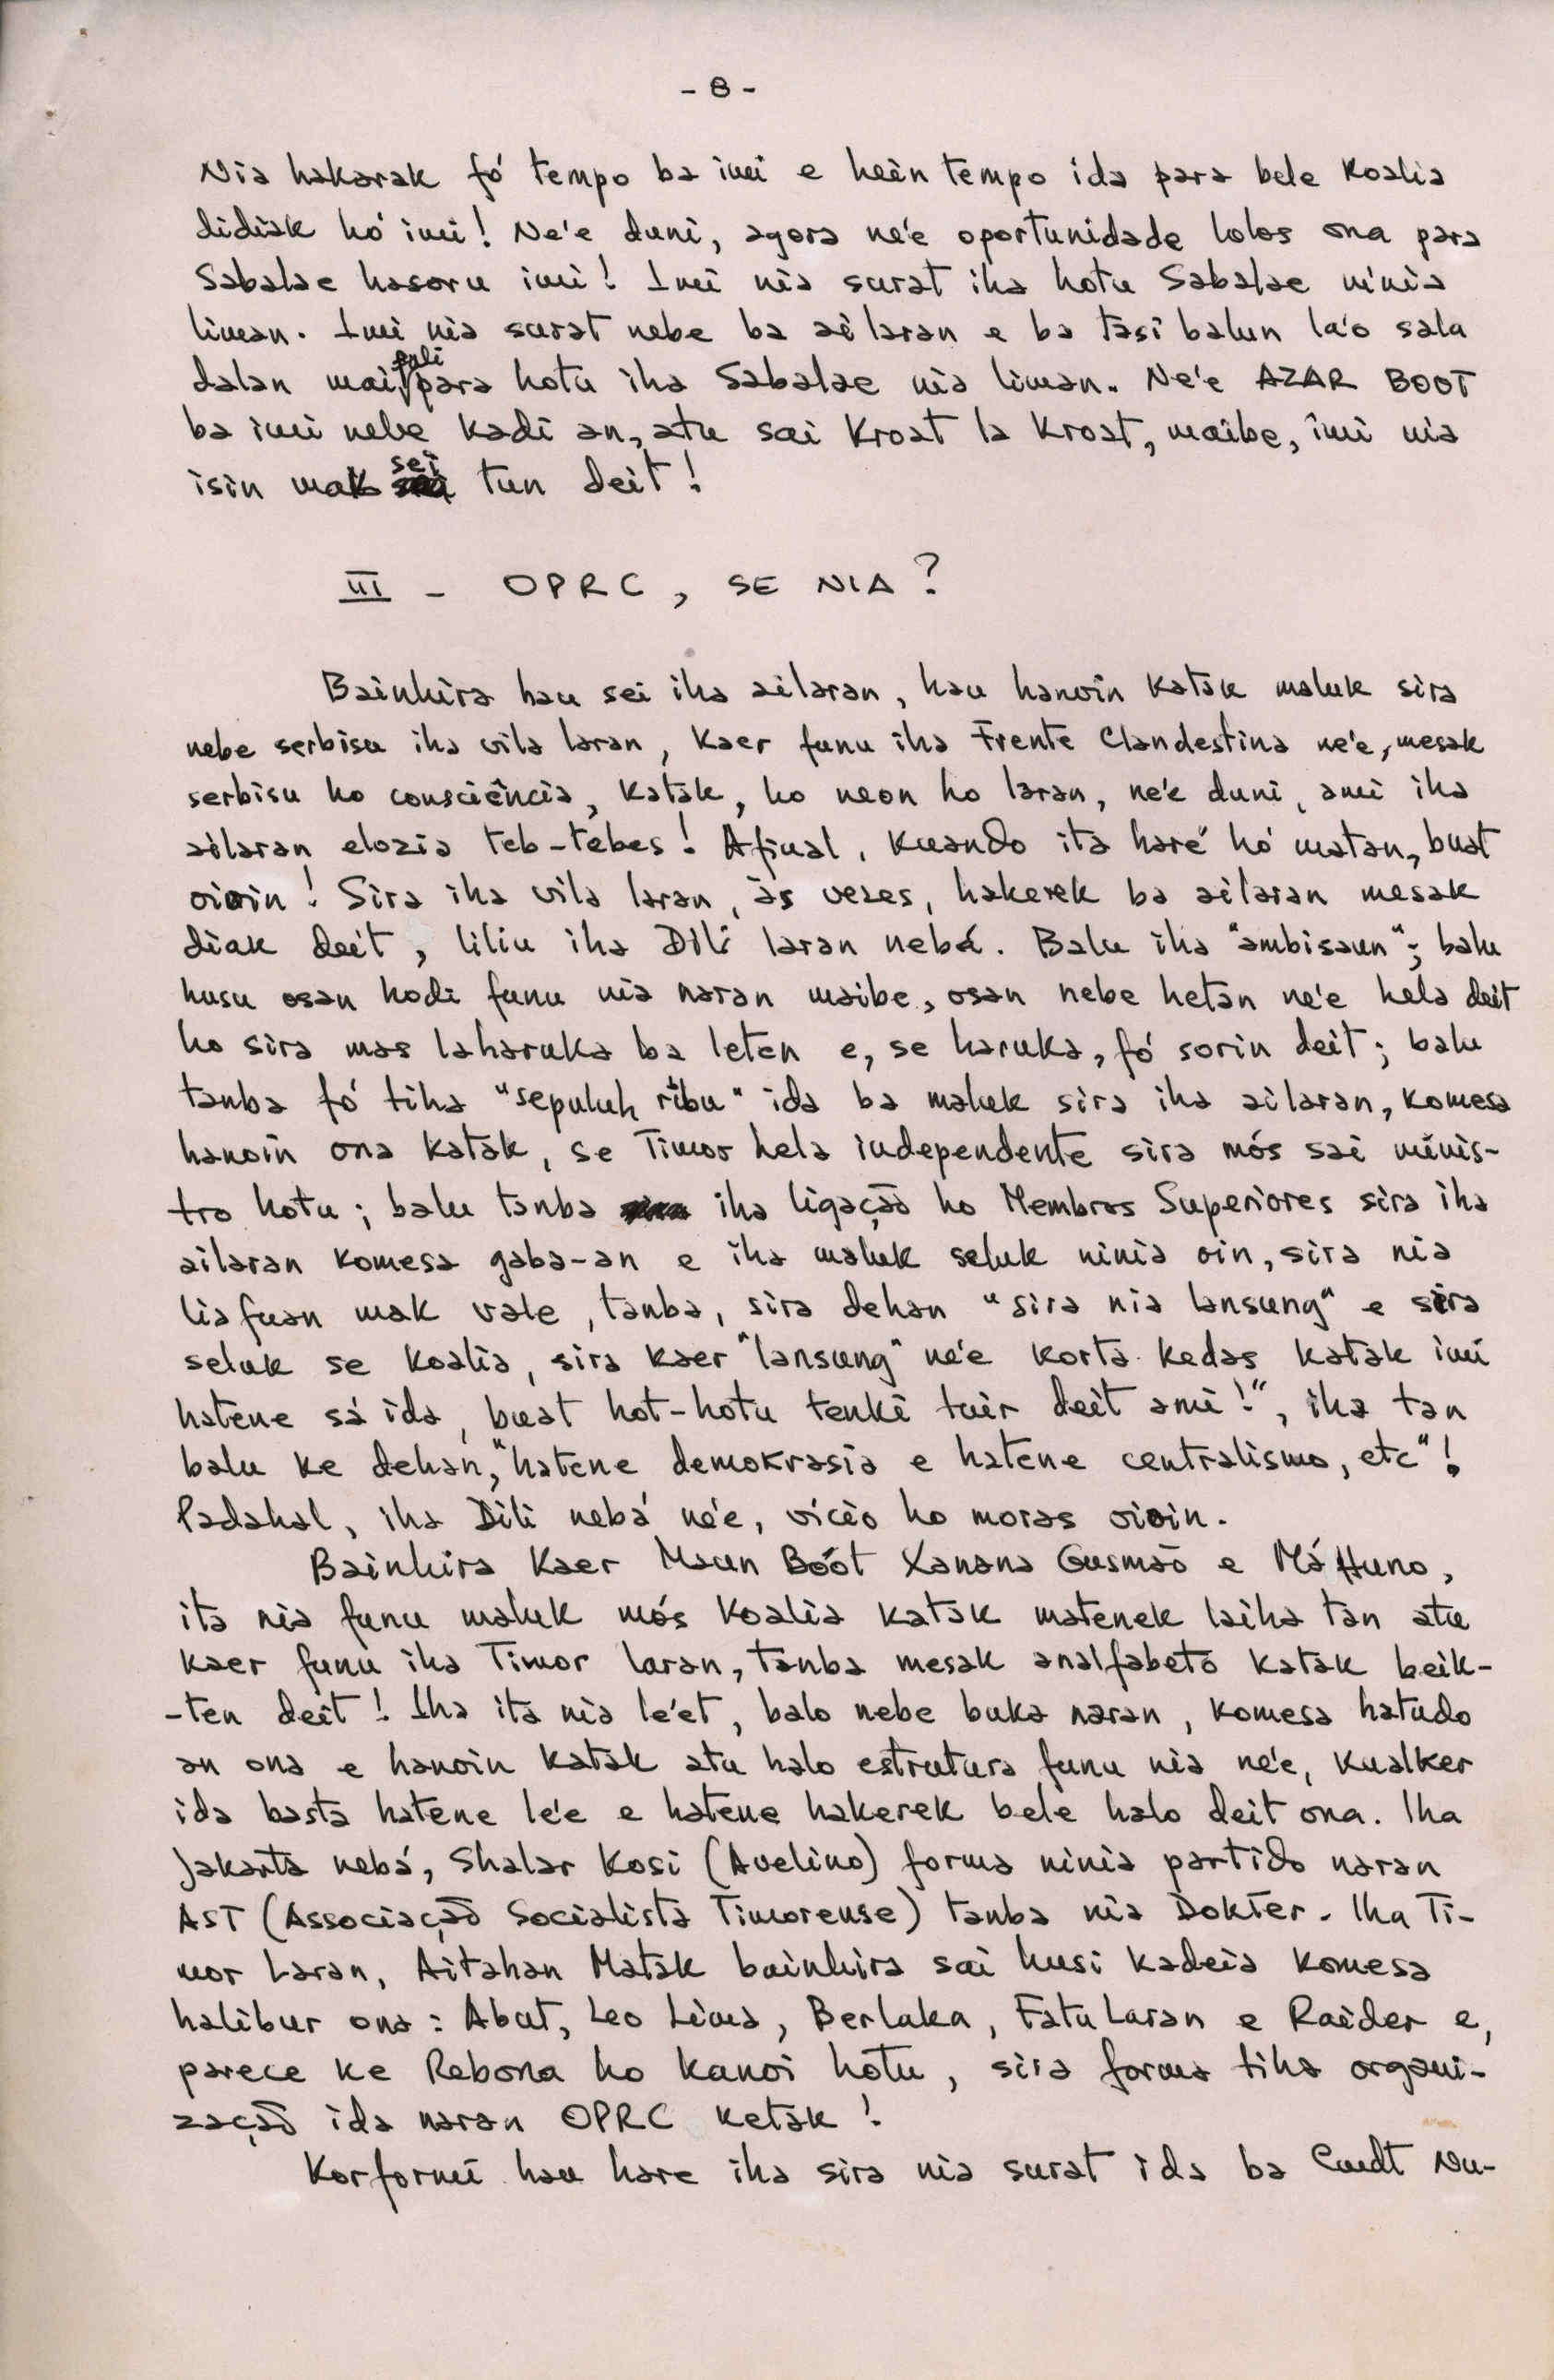 - 8 -
Nia hakarak fó tempo ba imi e heìn tempo ida para bele koalia
didiak hó imi! Ne'e duni, agora ne'e oportunidade lolos ona para
Sabalae hasoru imi! Imi nia surat iha hotu Sabalae ninia
liman. Imi nia surat nebe ba ai laran e ba tasi balun la'o sala
dalan mai fali para hotu iha Sabalae nia liman. Ne'e AZAR BOOT
ba imi nebe kadi an, atu sai kroat la kroat, maibe, imi nia
isin mak sei tun deit!
III - OPRC, SE NIA?
Bainhira hau sei iha ailaran, hau hanoin katak maluk sira
nebe serbisu iha vila laran, kaer funu iha Frente Clandestina ne'e, mesak
serbisu ho consciência, katak, ho neon ho laran, ne'e duni, ami iha
ailaran elozia teb-tebes! Afinal, kuando ita haré hó matan, buat
oioin! Sira iha vila laran, às vezes, hakerek ba ailaran mesak
diak deit, liliu iha Dili laran nebá. Balu iha "ambisaun"; balu
husu osan hodi funu nia naran maibe, osan nebe hetan ne'e hela deit
ho sira mas laharuka ba leten e, se haruka, fó sorin deit; balu
tanba fó tiha "sepuluh ribu" ida ba maluk sira iha ailaran, komesa
hanoin ona katak, se Timor hela independente sira mós sai minis-
tro hotu; balu tanba iha ligação ho Membros Superiores sira iha
ailaran komesa gaba-an e iha maluk seluk ninia oin, sira nia
liafuan mak vale, tanba, sira dehan "sira nia lansung" e sira
seluk se koalia, sira kaer "lansung" ne'e korta kedas katak imi
hatene sá ida, buat hot-hotu tenki tuir deit ami!", iha tan
balu ke dehan, "hatene demokrasia e hatene centralismo, etc"!
Padahal, iha Dili nebá ne'e, vício ho moras oioin.
Bainhira kaer Maun Bóót Xanana Gusmão e Má Huno,
ita nia funu maluk mós koalia katak matenek laiha tan atu
kaer funu iha Timor laran, tanba mesak analfabeto katak beik-
-ten deit! Iha ita nia le'et, balo nebe buka naran, komesa hatudo
an ona e hanoin katak atu halo estrutura funu nia ne'e, kualker
ida basta hatene le'e e hatene hakerek bele halo deit ona. Iha
Jakarta nebá, Shalar Kosi (Avelino) forma ninia partido naran
AST (Associação Socialista Timorense) tanba nia Dokter. Iha Ti-
mor Laran, Aitahan Matak bainhira sai husi kadeia komesa
halibur ona: Abut, Leo Lima, Berlaka, Fatu Laran e Raider e,
parece ke Rebona ho Kanoi hotu, sira forma tiha organi-
zação ida naran OPRC ketak!
Korformi hau hare iha sira nia surat ida ba Cmdt Nu-